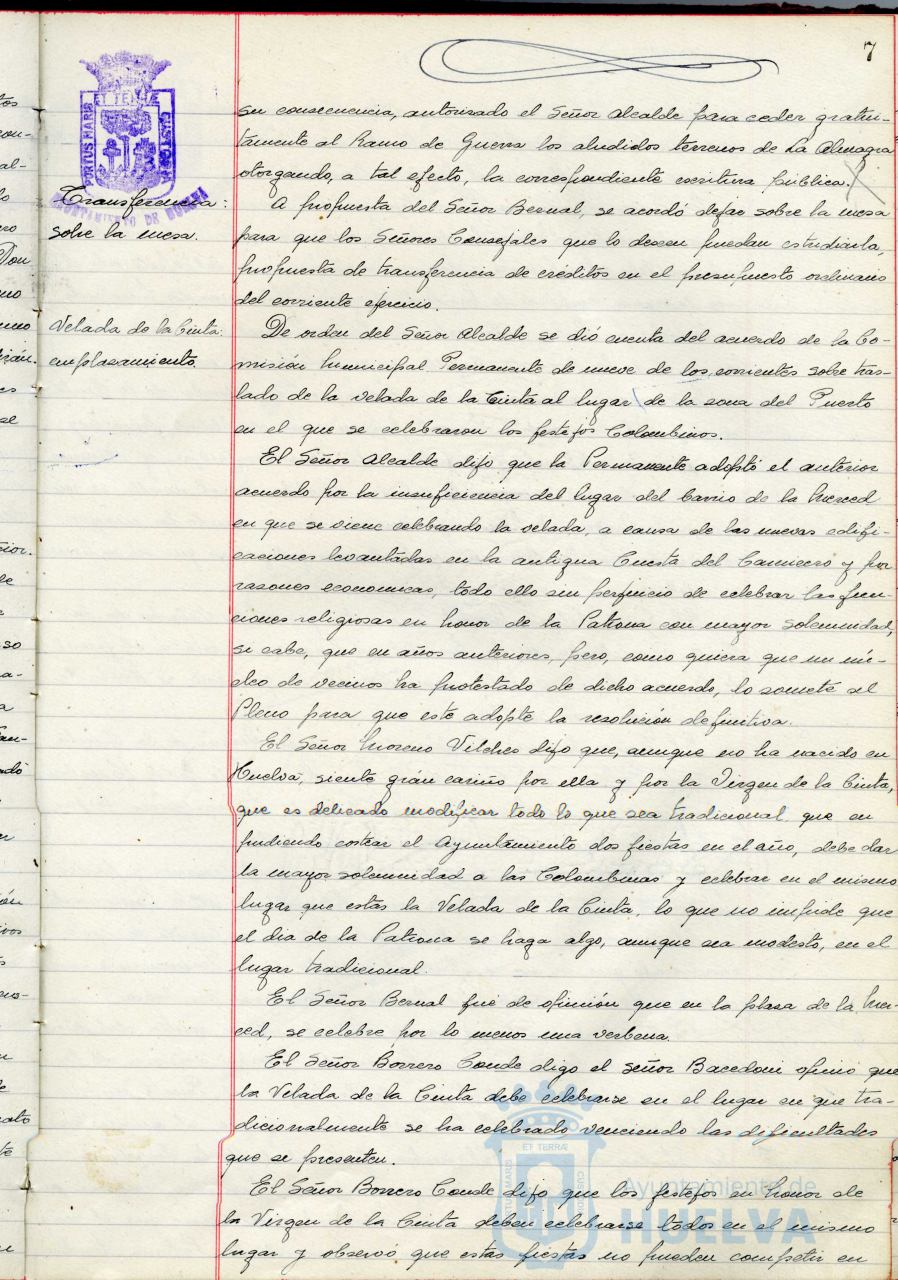 7
PORTUS MARIS
ET TERRÆ
CUSTODIA
AYUNTAMIENTO DE HUELVA
su consecuencia, autorizado el Señor Alcalde para ceder gratui-
tamente al Ramo de Guerra los aludidos terrenos de La Almagra
otorgando, a tal efecto, la correspondiente escritura pública.
Transferencia:
sobre la mesa.
A propuesta del Señor Bernal, se acordó dejar sobre la mesa
para que los Señores Concejales que lo deseen puedan estudiarla,
propuesta de transferencia de créditos en el presupuesto ordinario
del corriente ejercicio.
Velada de la Cinta:
emplazamiento.
De orden del Señor Alcalde se dió cuenta del acuerdo de la Co-
misión Municipal Permanente de nueve de los corrientes sobre tras-
lado de la velada de la Cinta al lugar de la zona del Puerto
en el que se celebraron los festejos Colombinos.
El Señor Alcalde dijo que la Permanente adoptó el anterior
acuerdo por la insuficiencia del lugar del barrio de la Merced
en que se viene celebrando la velada, a causa de las nuevas edifi-
caciones levantadas en la antigua Cuesta del Carnicero y por
razones economicas, todo ello sin perjuicio de celebrar las fun-
ciones religiosas en honor de la Patrona con mayor solemnidad,
si cabe, que en años anteriores, pero, como quiera que un nú-
cleo de vecinos ha protestado de dicho acuerdo, lo somete al
Pleno para que este adopte la resolución definitiva.
El Señor Moreno Vilches dijo que, aunque no ha nacido en
Huelva, siente gran cariño por ella y por la Virgen de la Cinta,
que es delicado modificar todo lo que sea tradicional, que en
pudiendo costear el Ayuntamiento dos fiestas en el año, debe dar
la mayor solemnidad a las Colombinas y celebrar en el mismo
lugar que estas la Velada de la Cinta, lo que no impide que
el dia de la Patrona se haga algo, aunque sea modesto, en el
lugar tradicional.
El Señor Bernal fué de opinión que en la plaza de la Mer-
ced, se celebre por lo menos una verbena.
El Señor Borrero Conde digo el señor Bacedoni opinó que
la Velada de la Cinta debe celebrarse en el lugar en que tra-
dicionalmente se ha celebrado venciendo las dificultades
que se presenten.
El Señor Borrero Conde dijo que los festejos en honor de
la Virgen de la Cinta deben celebrarse todos en el mismo
lugar y observó que estas fiestas no pueden competir en
Ayuntamiento de
HUELVA